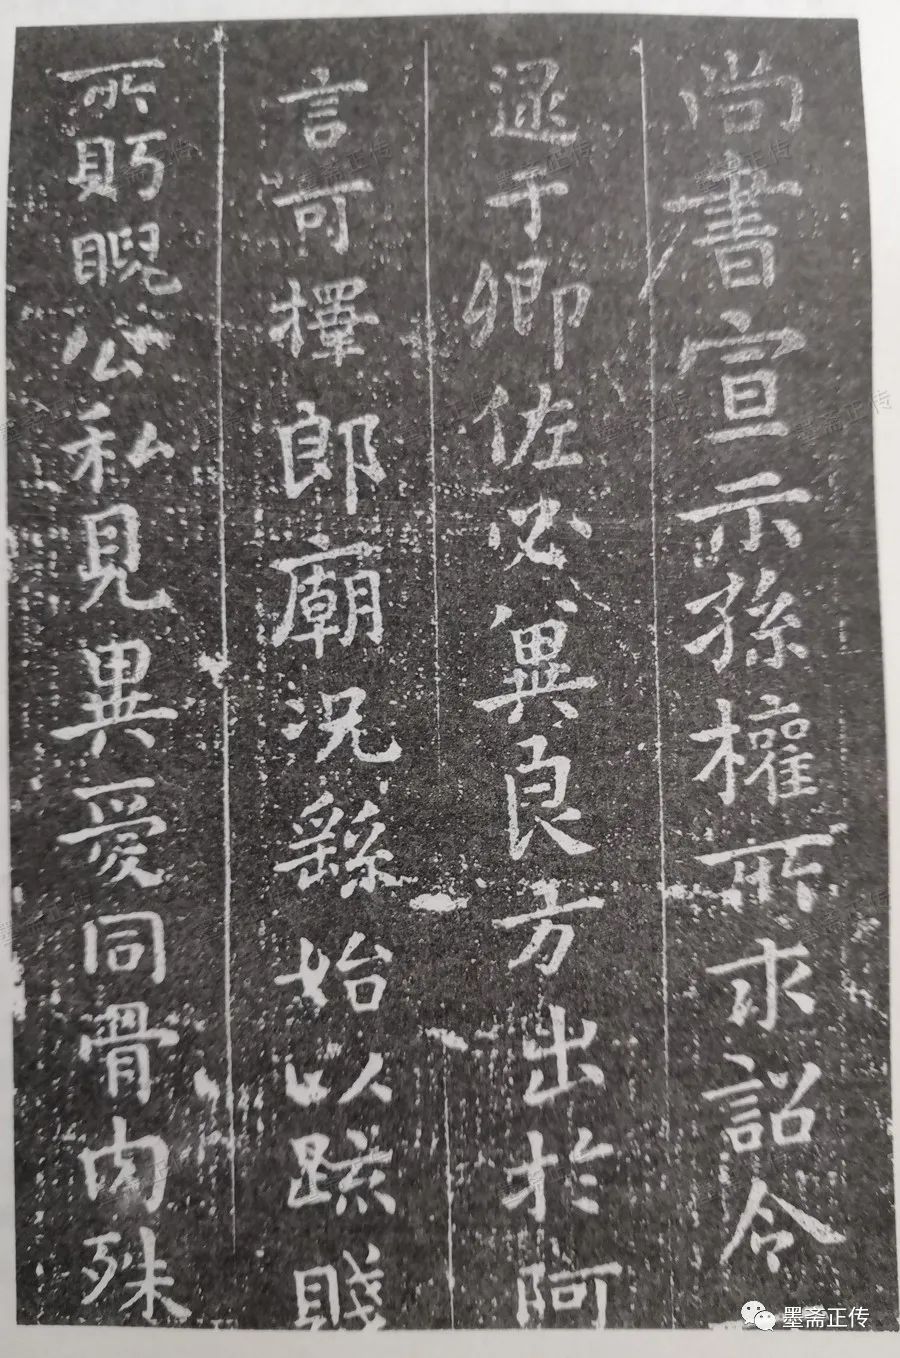 尚書宣示孫權所求詔令
逮于卿佐必冀良方出於阿
言可擇郎廟況繇始以踈賤
所眄睨公私見異愛同骨肉殊
墨斋正传